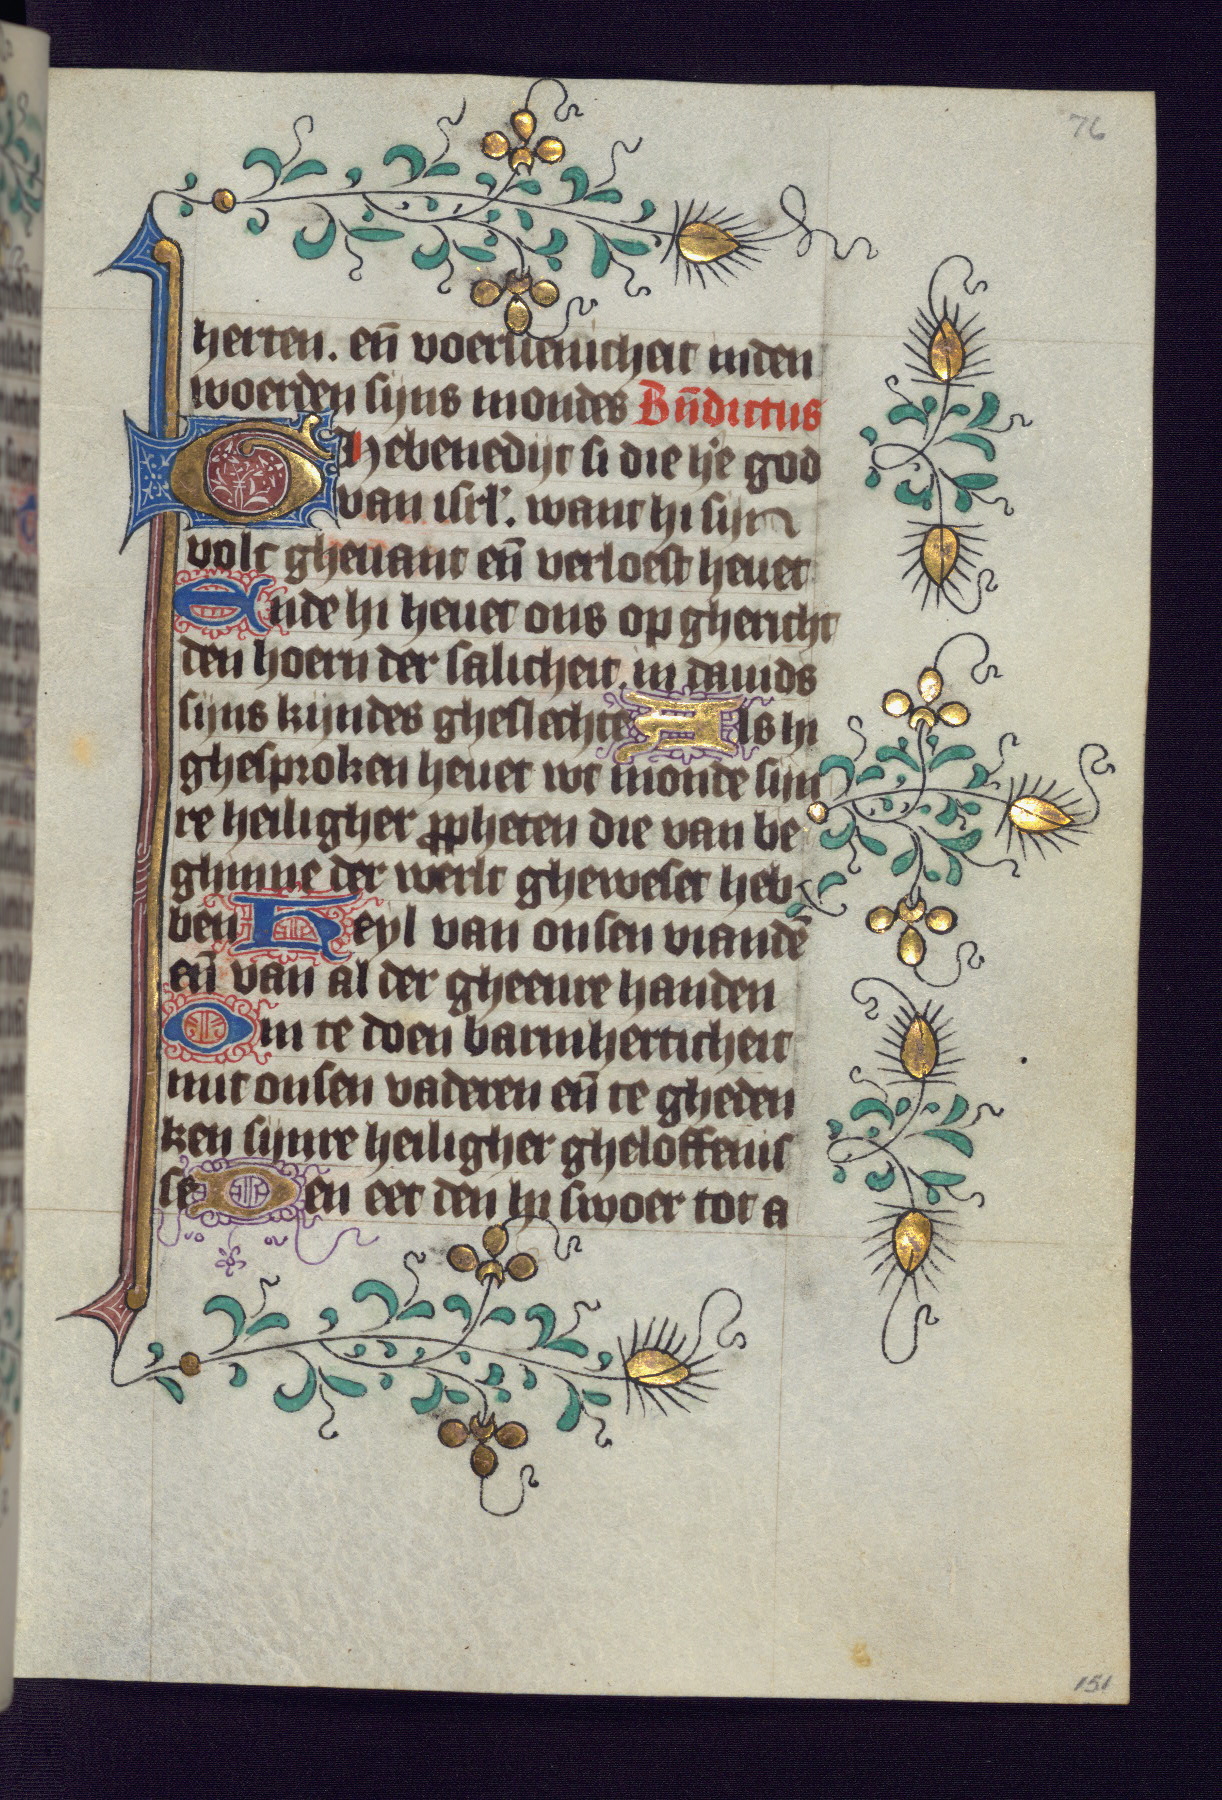 76
herten. en̄ voersienicheit inden
woerden sijns mondes Bn̄dictus
Ghebenedijt si die h̄e god
van isrl'. want hi sijn
volc gheuant en̄ verloest heuet
Ende hi heuet ons op ghericht
den hoern der salicheit. in dauids
sijns kijndes gheslechte Als hi
ghesproken heuet wt monde sijn
re heiligher ꝓpheten die van be
ghinne der werlt gheweset heb
ben Heyl van onsen viandē
en̄ van al der gheenre handen
Om te doen barmherticheit
mit onsen vaderen en̄ te gheden
ken sijnre heiligher gheloffenis
se Den eet den hi swoer tot a
151